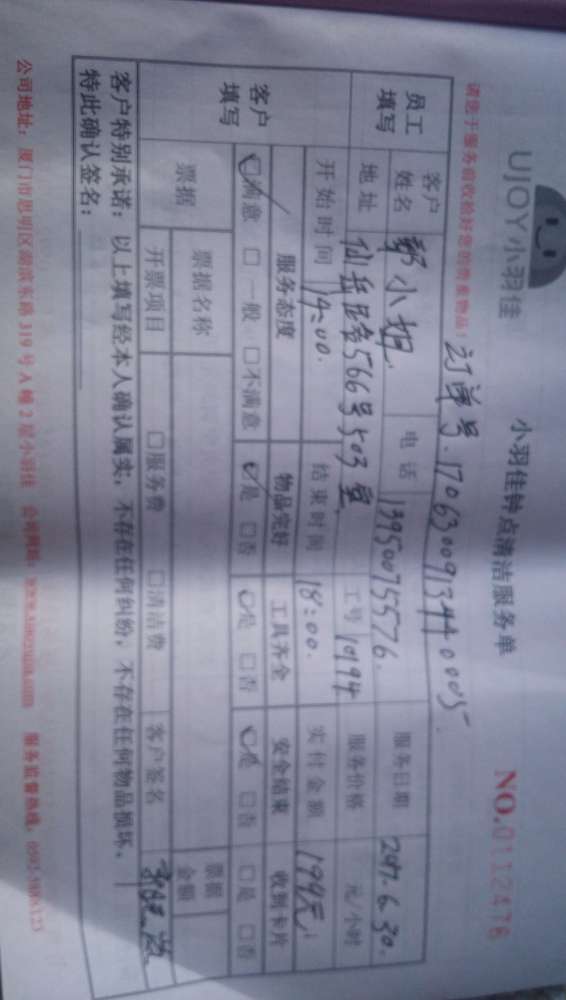 UJOY小羽佳
小羽佳钟点清洁服务单
NO.0112476
请您于服务前收拾好您的贵重物品!
订单号.1706300913440005.
员工填写
客户姓名 郭小姐 电话 13950075576. 服务日期 2017.6.30.
地址 566号503室 工号 10194 服务价格 元/小时
开始时间 14:00. 结束时间 18:00. 实付金额 194元
客户填写
服务态度 物品完好 工具齐全 安全结束 收到卡片
☑满意 □一般 □不满意 ☑是 □否 ☑是 □否 ☑是 □否 □是 □否
票据 票据名称 票据金额
开票项目 □服务费 □清洁费 客户签名
客户特别承诺:以上填写经本人确认属实,不存在任何纠纷,不存在任何物品损坏,
特此确认签名:
公司地址:厦门市思明区湖滨东路319号A幢2层小羽佳 公司网址:www.xiaoyujia.com 服务监督热线: